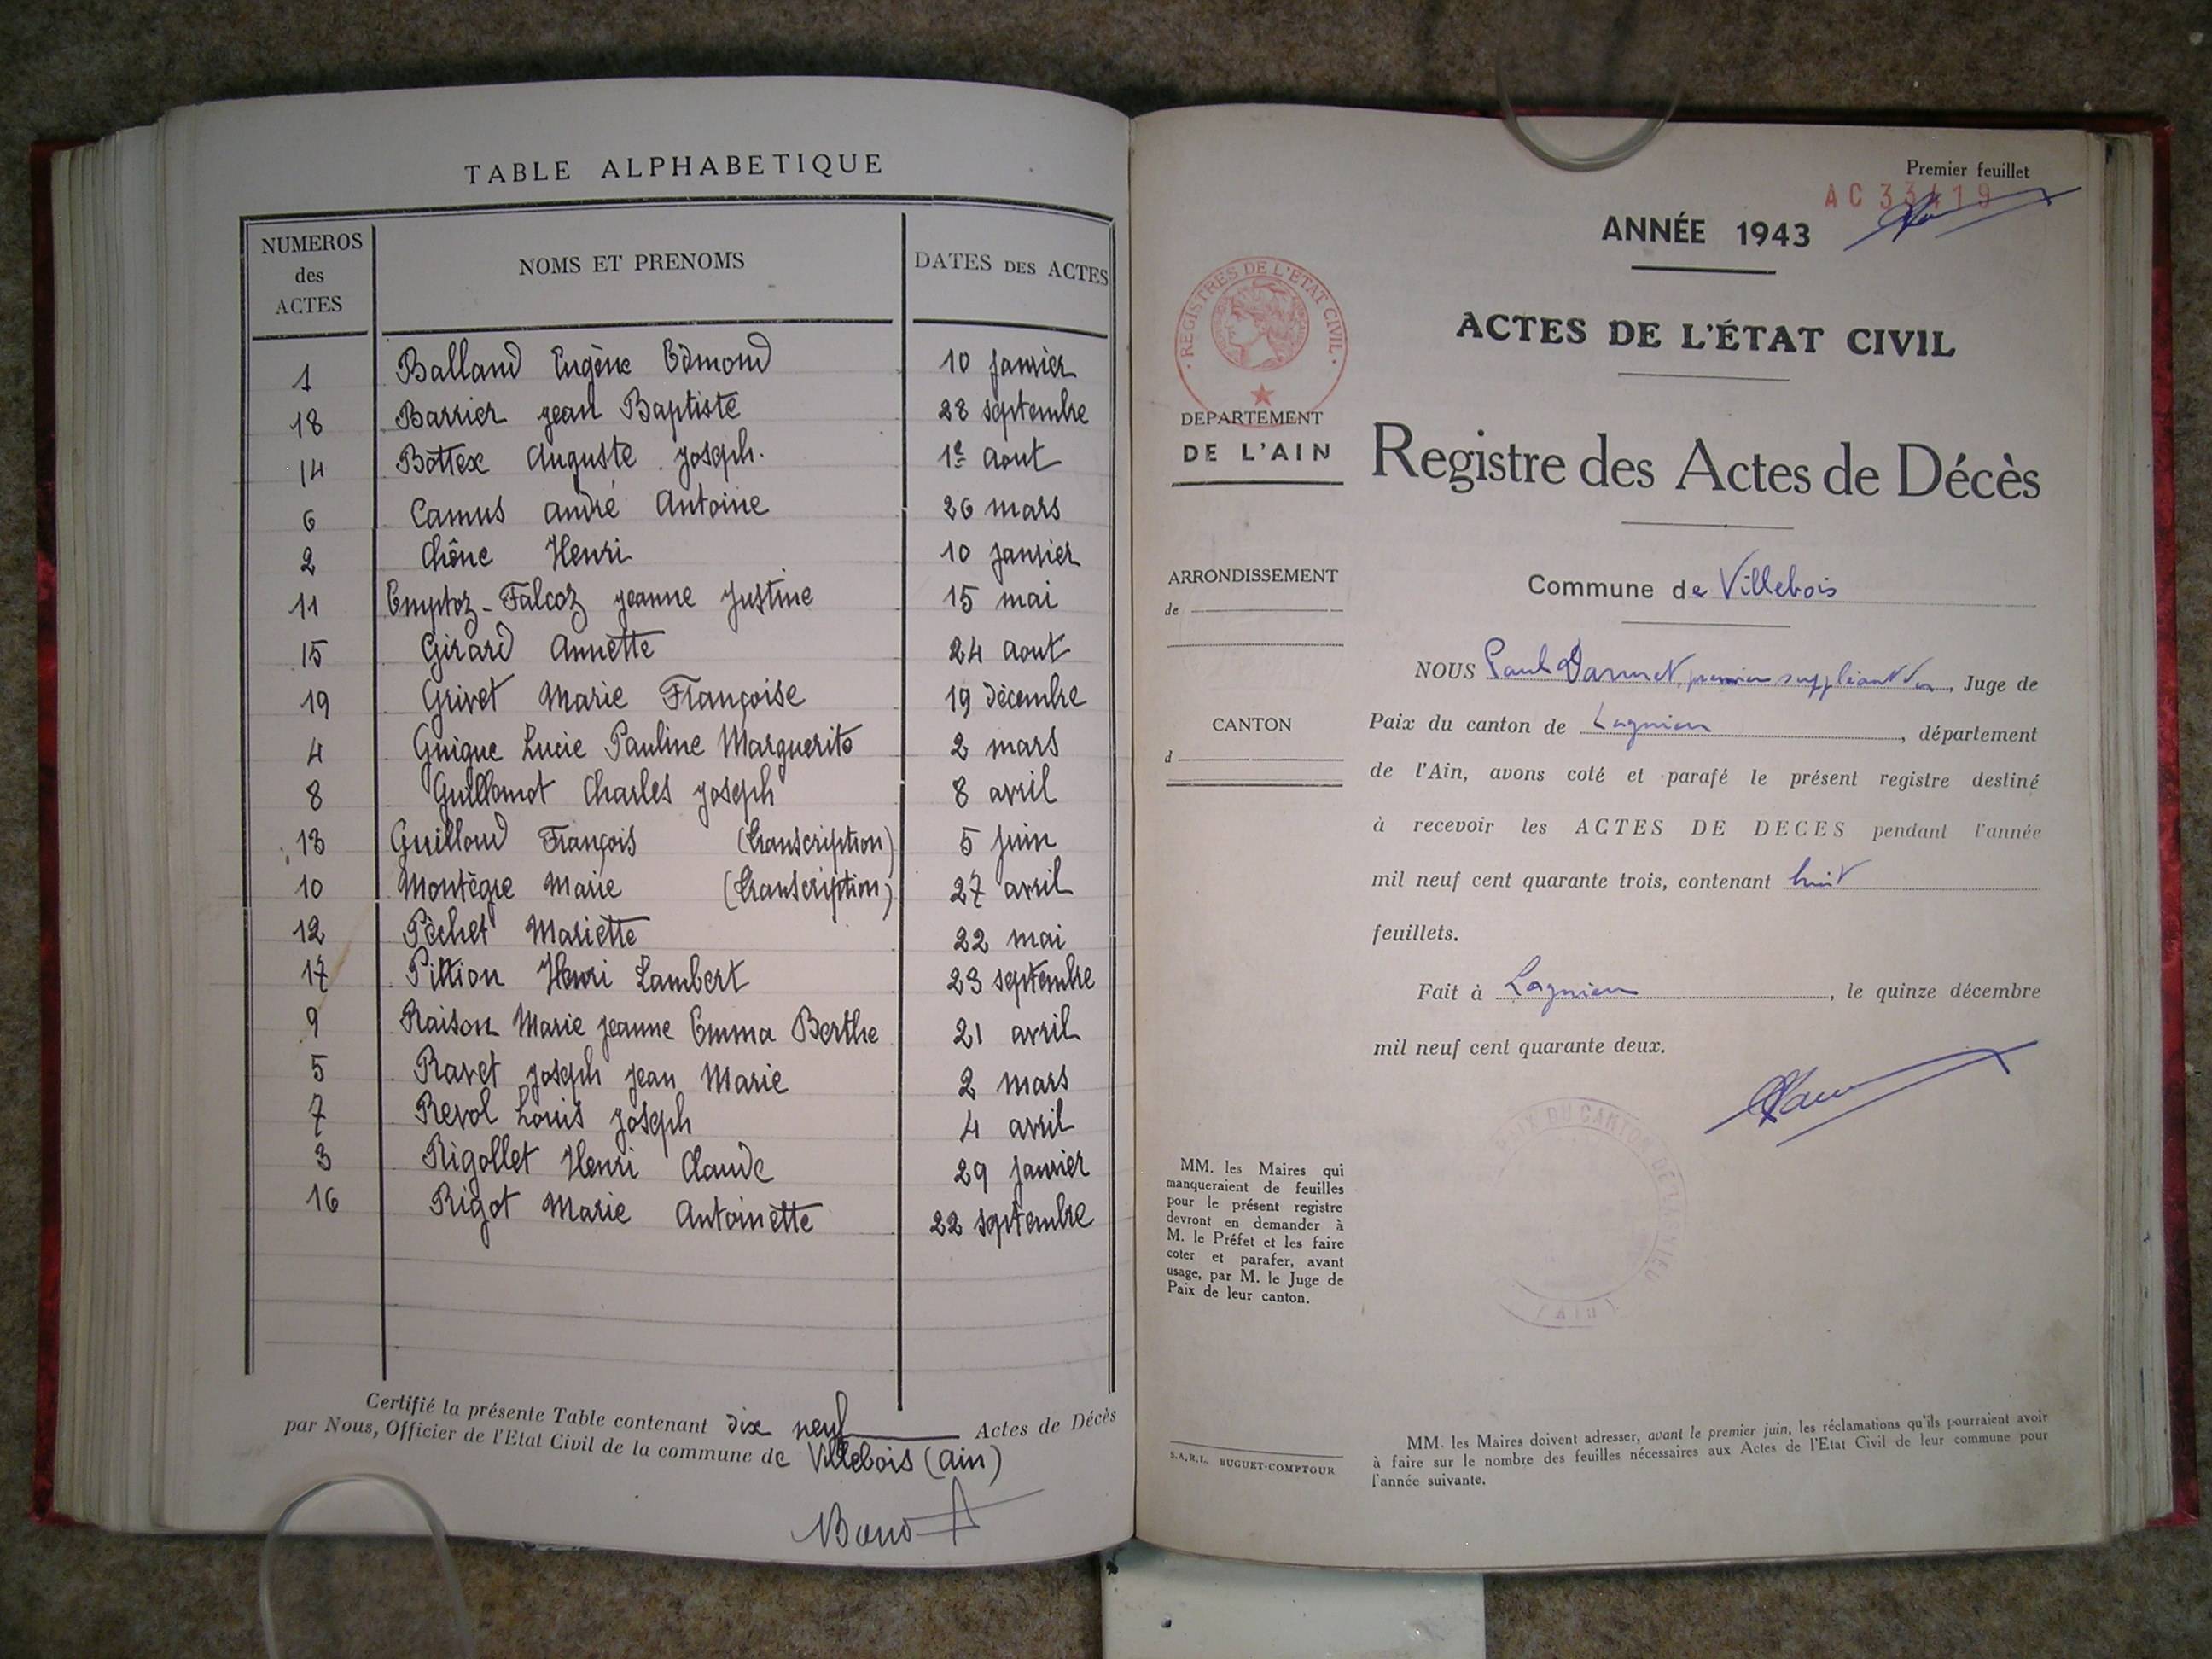 TABLE ALPHABETIQUE
NUMEROS des ACTES NOMS ET PRENOMS DATES DES ACTES
1 Balland Eugène Edmond 10 janvier
18 Barrier jean Baptiste 28 septembre
14 Bottex Auguste joseph. 1e aout
6 Camus andré Antoine 26 mars
2 Chêne Henri 10 janvier
11 Emptoz-Falcoz jeanne justine 15 mai
15 Girard Annette 24 aout
19 Grivet Marie Françoise 19 décembre
4 Guigue Lucie Pauline Marguerite 2 mars
8 Guillomot Charles joseph 8 avril
13 Guilloud François (transcription) 5 juin
10 Montègre Marie (transcription) 27 avril
12 Pèchet Mariette 22 mai
17 Pittion Henri Lambert 23 septembre
9 Raison Marie jeanne Emma Berthe 21 avril
5 Ravet joseph jean Marie 2 mars
7 Revol Louis joseph 4 avril
3 Rigollet Henri Claude 29 janvier
16 Rigot Marie Antoinette 22 septembre
Certifié la présente Table contenant dix neuf Actes de Décès
par Nous, Officier de l'Etat Civil de la commune de Villebois (Ain)
Premier feuillet
AC 33419
ANNÉE 1943
REGISTRES DE L'ETAT CIVIL
ACTES DE L'ÉTAT CIVIL
DEPARTEMENT
DE L'AIN
Registre des Actes de Décès
ARRONDISSEMENT
de
Commune de Villebois
NOUS Paul premier suppléant du, Juge de
CANTON
d
Paix du canton de Lagnieu, département
de l'Ain, avons coté et parafé le présent registre destiné
à recevoir les ACTES DE DECES pendant l'année
mil neuf cent quarante trois, contenant huit
feuillets.
Fait à Lagnieu, le quinze décembre
mil neuf cent quarante deux.
PAIX DU CANTON DE LAGNIEU
(AIN)
MM. les Maires qui
manqueraient de feuilles
pour le présent registre
devront en demander à
M. le Préfet et les faire
coter et parafer, avant
usage, par M. le Juge de
Paix de leur canton.
S.A.R.L. BUGUET-COMPTOUR
MM. les Maires doivent adresser, avant le premier juin, les réclamations qu'ils pourraient avoir
à faire sur le nombre des feuilles nécessaires aux Actes de l'Etat Civil de leur commune pour
l'année suivante.